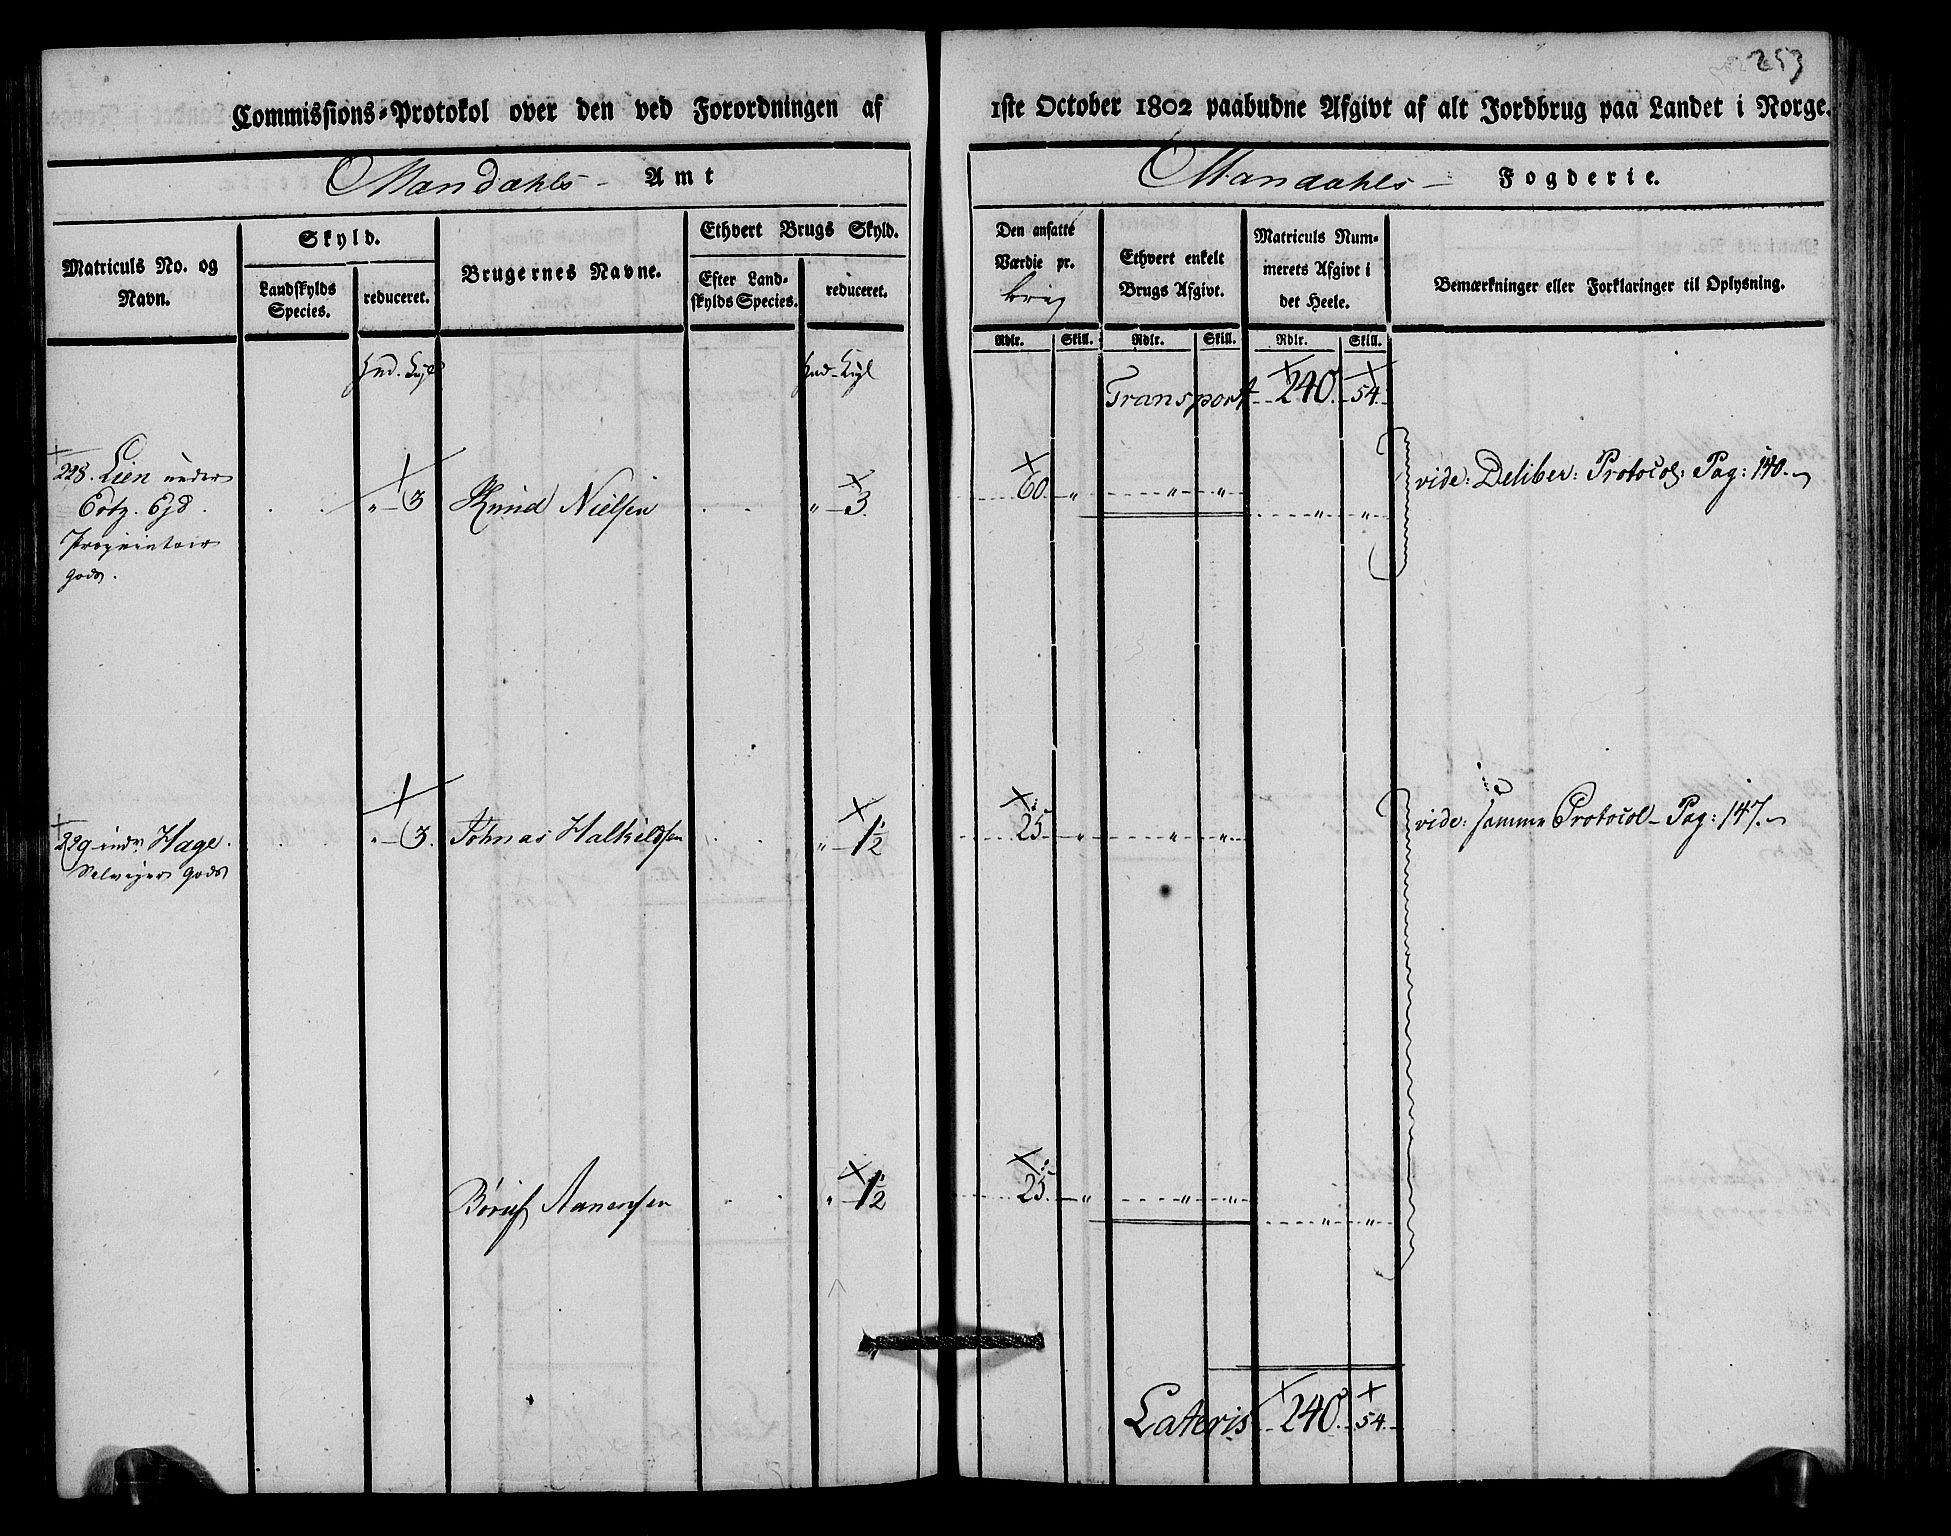 253
Commissions-Protokol over den ved Forordningen af 1ste October 1802 paabudne Afgivt af alt Jordbrug paa Landet i Norge.
Mandahls Amt
Mandahls Fogderie.
Matriculs No. og Navn.
Skyld.
Landskylds Species.
reduceret.
Brugernes Navne.
Ethvert Brugs Skyld.
Efter Land-skylds Species.
reduceret.
Den ansatte Værdie pr.
Ethvert enkelt Brugs Afgivt.
Matriculs Num-merets Afgivt i det Heele.
Bemærkninger eller Forklaringer til Oplysning.
Rdlr. Skill. Rdlr. Skill. Rdlr. Skill.
Transport 240. 54.
228. Lien under
" 3 Knud Nielsen " 3. 60. " " " " " vide: Deliber: Protocol: Pag: 140.
Proprietair
gods.
229 Hage.
" 3. Johnas Halkildsen " 1½ 25 " " " vide: samme Protocol Pag: 147.
Selveyer gods
Aanensen " 1½ 25. " " " " "
Lateris 240. 54.